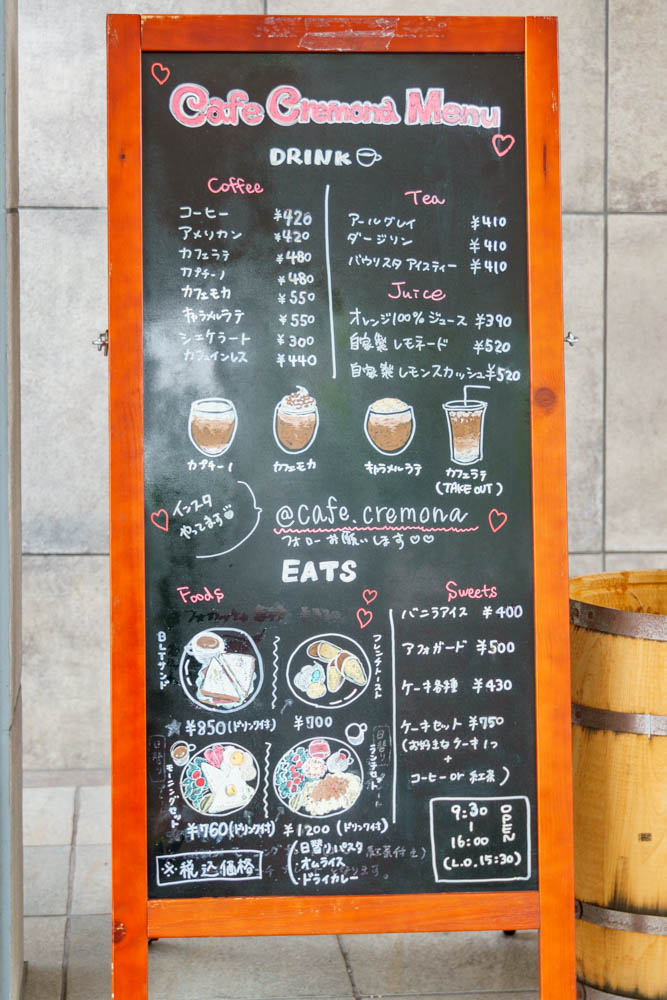 Cafe Cremona Menu
DRINK
Coffee
コーヒー ¥420
アメリカン ¥420
カフェラテ ¥480
カプチーノ ¥480
カフェモカ ¥550
キャラメルラテ ¥550
シェケラート ¥300
カフェインレス ¥440
Tea
アールグレイ ¥410
ダージリン ¥410
パウリスタ アイスティー ¥410
Juice
オレンジ100%ジュース ¥390
自家製レモネード ¥520
自家製レモンスカッシュ ¥520
カプチーノ
カフェモカ
キャラメルラテ
カフェラテ
(TAKE OUT)
インスタ
やってます
@cafe.cremona
フォローお願いします♡♡
EATS
Foods
BLTサンド
¥850(ドリンク付)
フレンチトースト
¥700
モーニングセット
¥760(ドリンク付)
日替り
ランチプレート
¥1200 (ドリンク付)
・日替りパスタ
・オムライス
・ドライカレー
※税込価格
Sweets
バニラアイス ¥400
アフォガード ¥500
ケーキ各種 ¥430
ケーキセット ¥750
(お好きなケーキ1つ
+
コーヒー or 紅茶)
OPEN
9:30
|
16:00
(L.O.15:30)